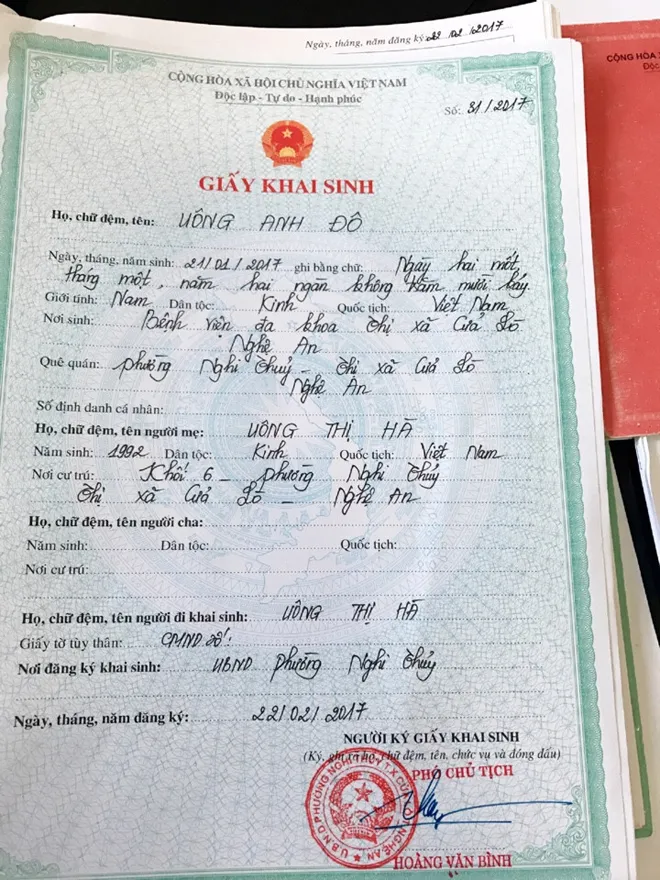 Ngày, tháng, năm đăng ký: 22/02/2017
CỘNG HÒA XÃ HỘI CHỦ NGHĨA VIỆT NAM
Độc lập - Tự do - Hạnh phúc
Số: 31/2017
CỘNG HÒA X
Độc
GIẤY KHAI SINH
Họ, chữ đệm, tên: UÔNG ANH ĐÔ
Ngày, tháng, năm sinh: 21/01/2017 ghi bằng chữ: Ngày hai mốt,
tháng một, năm hai ngàn không trăm mười bảy
Giới tính: Nam Dân tộc: Kinh Quốc tịch: Việt Nam
Nơi sinh: Bệnh viện đa khoa Thị xã Cửa Lò
Nghệ An
Quê quán: phường Nghi Thuỷ - Thị xã Cửa Lò
Nghệ An
Số định danh cá nhân:
Họ, chữ đệm, tên người mẹ: UÔNG THỊ HÀ
Năm sinh: 1992 Dân tộc: Kinh Quốc tịch: Việt Nam
Nơi cư trú: Khối 6 - phường Nghi Thủy
Thị xã Cửa Lò - Nghệ An
Họ, chữ đệm, tên người cha:
Năm sinh: Dân tộc: Quốc tịch:
Nơi cư trú:
Họ, chữ đệm, tên người đi khai sinh: UÔNG THỊ HÀ
Giấy tờ tùy thân: CMND số:
Nơi đăng ký khai sinh: UBND phường Nghi Thủy
Ngày, tháng, năm đăng ký: 22/02/2017
NGƯỜI KÝ GIẤY KHAI SINH
(Ký, ghi rõ họ, chữ đệm, tên, chức vụ và đóng dấu)
PHÓ CHỦ TỊCH
U.B.N.D PHƯỜNG NGHI THỦY T.X CỬA LÒ NGHỆ AN
HOÀNG VĂN BÌNH